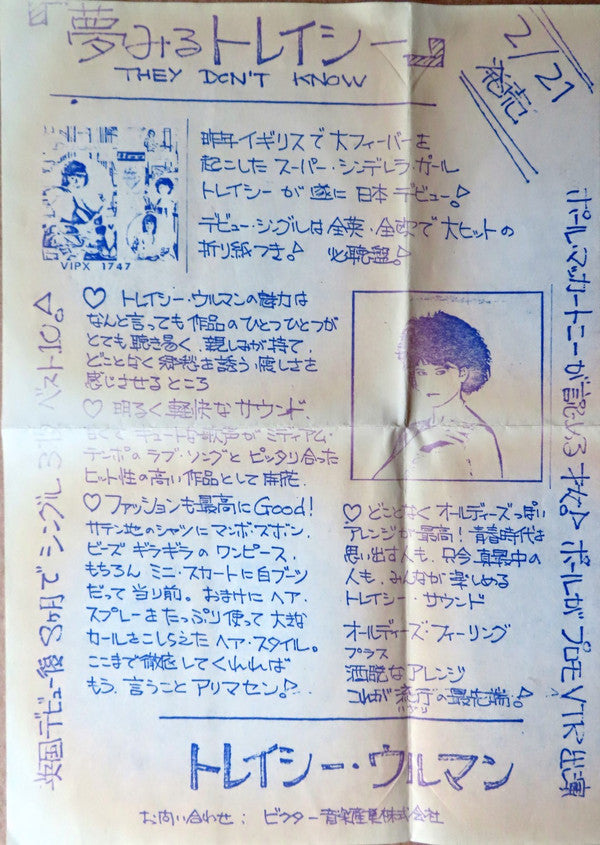 夢みるトレイシー
THEY DON'T KNOW
2/21
発売
昨年イギリスで大フィーバーを
起こしたスーパー・シンデレラ・ガール
トレイシーが遂に日本デビュー!
デビュー・シングルは全英・全欧で大ヒットの
折り紙つき! 必聴盤!
VIPX 1747
♡ トレイシー・ウルマンの魅力は
なんと言っても作品のひとつひとつが
とても聴き易く、親しみが持て、
どことなく郷愁を誘う優しさを
感じさせるところ
♡ 明るく軽快なサウンド
甘くてキュートな歌声がミディアム・
テンポのラブ・ソングとピッタリ合った
ヒット性の高い作品として開花
♡ ファッションも最高にGood!
サテン地のシャツにマンボ・ズボン、
ビーズギラギラのワンピース、
もちろんミニ・スカートに白ブーツ
だって当り前。おまけにヘア・
スプレーをたっぷり使って大袈
カールをこしらえたヘア・スタイル。
ここまで徹底してくれれば
もう、言うことアリマセン!
♡ どことなくオールディーズっぽい
アレンジが最高! 青春時代を
思い出す人も、只今真最中の
人も、みんなが楽しめる
トレイシー・サウンド
オールディーズ・フィーリング
プラス
洒脱なアレンジ
これが流行の最先端!
英国デビュー後8ヶ月でシングル3枚ベスト10!
ポール・マッカートニーが認める才女! ポールがプロモVTR出演
トレイシー・ウルマン
お問い合わせ: ビクター音楽産業株式会社